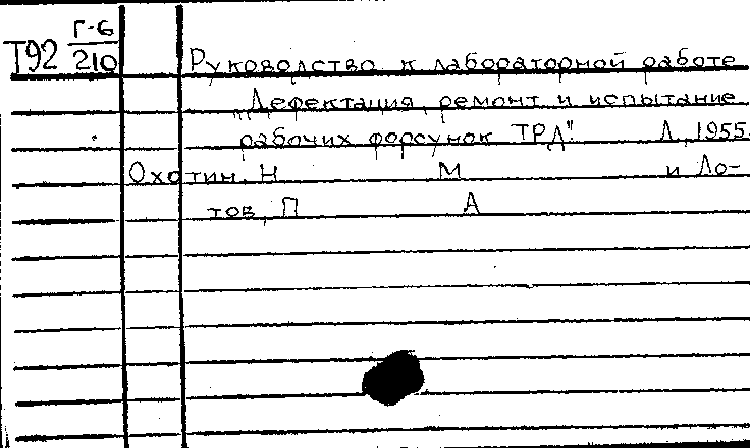 Т92 Г-6
210
Руководство к лабораторной работе
„Дефектация, ремонт и испытание
рабочих форсунок ТРД" Л, 1955.
Охотин, Н М и Ло-
тов, П А